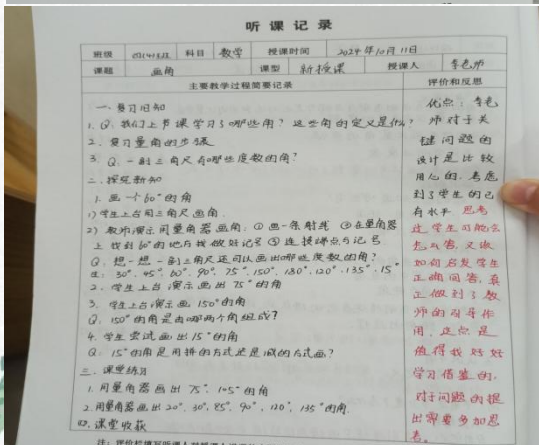 听课记录
班级 科目 数学 授课时间 2024年10月11日
课题 画角 课型 新授课 授课人 李老师
主要教学过程简要记录 评价和反思
一、复习旧知
1. Q: 我们上节课学习了哪些角？这些角的定义是什么？
2. 复习量角的步骤
3. Q: 一副三角尺有哪些度数的角？
二、探究新知
1. 画一个60°的角
1) 学生上台用三角尺画角.
2) 教师演示用量角器画角: ① 画一条射线 ② 在量角器
上找到60°的地方找做好记号 ③ 连接端点与记号
Q: 想一想一副三角尺还可以画出哪些度数的角？
生: 30°、45°、60°、90°、75°、150°、180°、120°、135°、15°
2. 学生上台演示画出75°的角
3. 学生上台演画150°的角
Q: 150°的角是由哪两个角组成？
4. 学生尝试画出15°的角
Q: 15°的角是用拼的方式还是减的方式画？
三、课堂练习
1. 用量角器画出75°、105°的角
2. 用量角器画出20°、30°、85°、90°、120°、135°的角.
四、课堂收获
优点：李老
师对于关
键问题的
设计是比较
用心的，考虑
到了学生的已
有水平，思考
过学生可能会
怎么答，又该
如何启发学生
正确回答，真
正做到了教
师的引导作
用，这点是
值得我好好
学习借鉴的，
对于问题的提
出需要多加思
考。